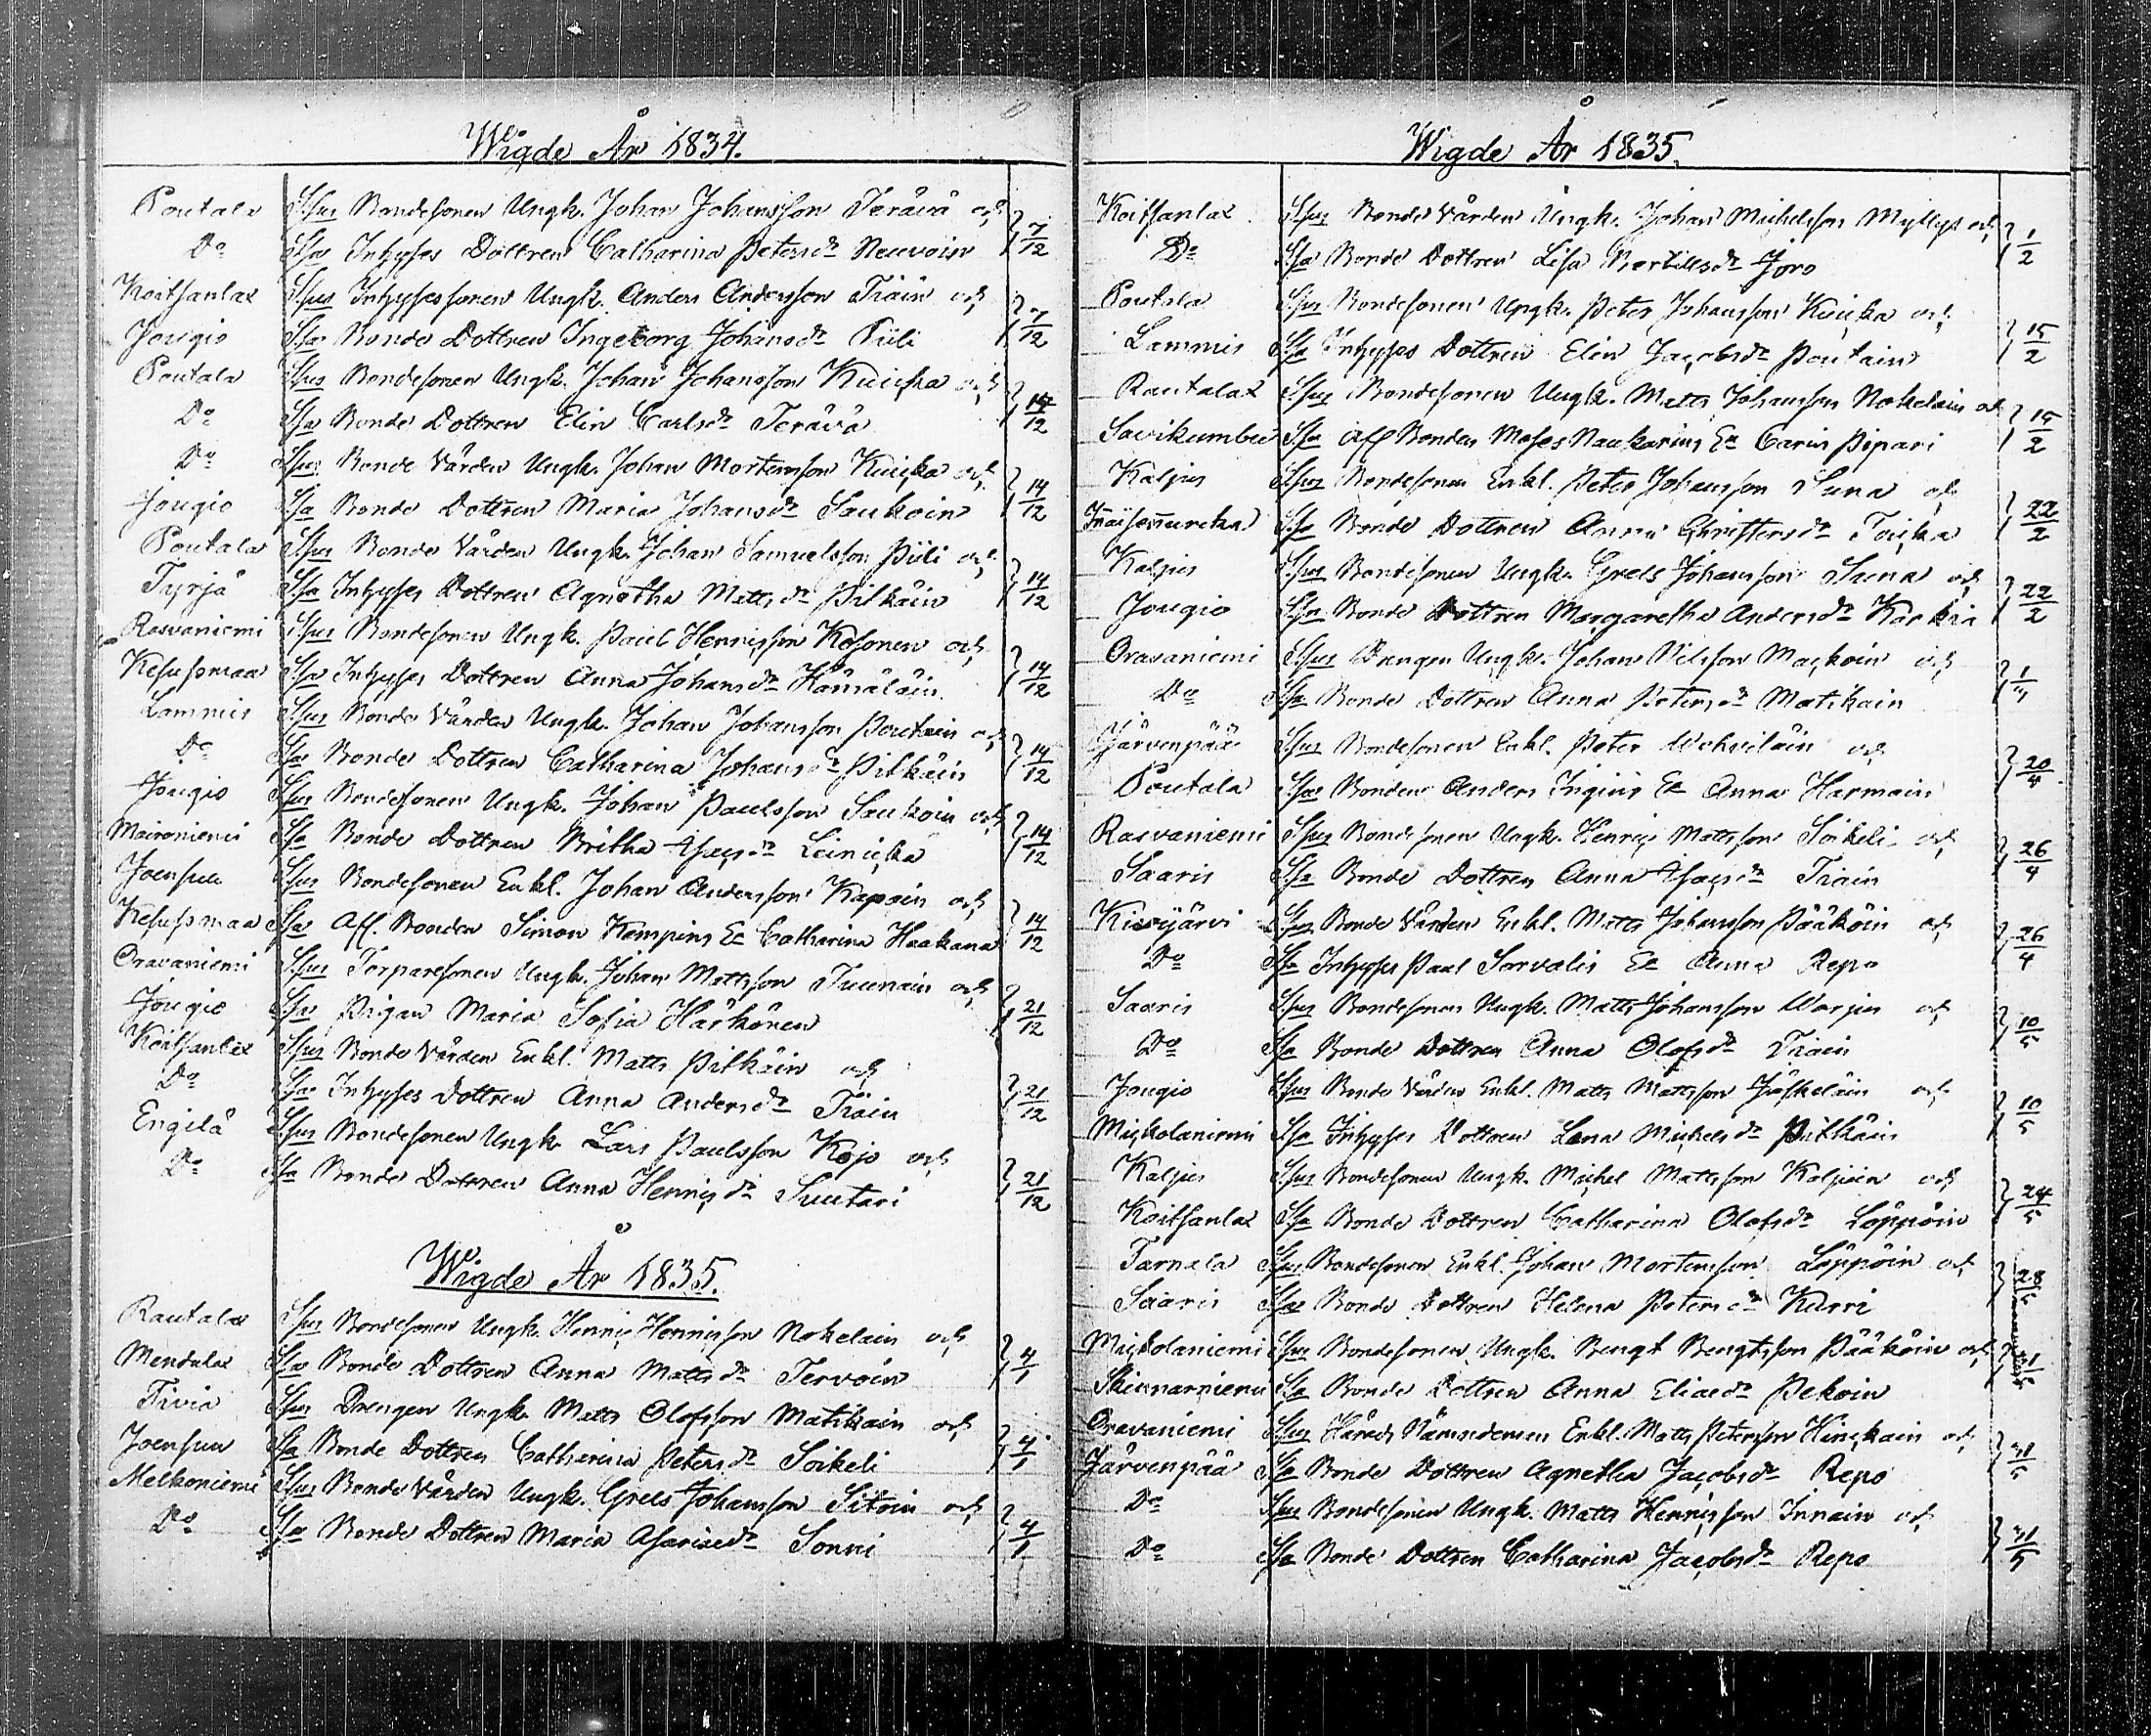 Wigde År 1834.
Poutala Spus Bondesonen Ungk. Johan Johansson Terävä och
Do Spa Inhyses Dottren Catharina Petersdr Neuvoin 7/12
Koitsanlax Spus Inhysessonen Ungk. Anders Andersson Träin och
Jougio Spa Bonde Dottren Ingeborg Johansdr Piili 7/12
Poutala Spus Bondesonen Ungk. Johan Johansson Kuicka och
Do Spa Bonde Dottren Elin Carlsdr Terävä 14/12
Do Spus Bonde Vården Ungk. Johan Mortensson Kuicka och
Jougio Spa Bonde Dottren Maria Johansdr Saukoin 14/12
Poutala Spus Bonde Vården Ungk. Johan Samuelsson Piili och
Tyrjä Spa Inhyses Dottren Agnetha Mattsdr Pitkäin 14/12
Rasvaniemi Spus Bondesonen Ungk. Paul Henricsson Kosonen och
Kesusmaa Spa Inhyses Dottren Anna Johansdr Hämäläin 14/12
Lammis Spus Bonde Vården Ungk. Johan Johansson Poutain och
Do Spa Bonde Dottren Catharina Johansdr Pitkäin 14/12
Jougio Spus Bondesonen Ungk. Johan Paulsson Saukoin och
Maironiemi Spa Bonde Dottren Britha Isacsdr Leinicka 14/12
Joensuu Spus Bondesonen Enkl. Johan Andersson Kapain och
Kesusmaa Spa Aff. Bonden Simon Kempins Ea Catharina Haakana 14/12
Oravaniemi Spus Torparesonen Ungk. Johan Mattsson Tuunain och
Jougio Spa Pigan Maria Sofia Härkönen 21/12
Koitsanlax Spus Bonde Vården Enkl. Matts Pitkäin och
Do Spa Inhyses Dottren Anna Andersdr Träin 21/12
Engilä Spus Bondesonen Ungk. Lars Paulsson Kojo och
Do Spa Bonde Dottren Anna Henricsdr Suutari 21/12
Wigde År 1835.
Rautalax Spus Bondesonen Ungk. Henric Henricsson Nokelain och
Mendulax Spa Bonde Dottren Anna Mattsdr Tervoin 4/1
Tivia Spus Drengen Ungk. Matts Olofsson Matikain och
Joensuu Spa Bonde Dottren Catharina Petersdr Soikeli 4/1
Melkoniemi Spus Bonde Vården Ungk. Grels Johansson Sitoin och
Do Spa Bonde Dottren Maria Asariaedr Sonni 4/1
Wigde År 1835.
Koitsanlax Spus Bonde Vården Ungk. Johan Michelsson Myllys och
Do Spa Bonde Dottren Lisa Bertilsdr Joro 1/2
Poutala Spus Bondesonen Ungk. Peter Johansson Kuicka och
Lammis Spa Inhyses Dottren Elin Jacobsdr Poutain 15/2
Rautalax Spus Bondesonen Ungk. Matts Johansson Nokelain och
Savikumbu Spa Aff Bonden Moses Naukarins Ea Carin Pipari 15/2
Kaljus Spus Bondesonen Enkl. Peter Johansson Suna och
Spa Bonde Dottren Anna Christersdr Tuicka 22/2
Kaljus Spus Bondesonen Ungk. Grels Johansson Suna och
Jougio Spa Bonde Dottren Margaretha Andersdr Karkia 22/2
Oravaniemi Spus Drengen Ungk. Johan Nilsson Mackoin och
Do Spa Bonde Dottren Anna Petersdr Matikain
Järvenpää Spus Bondesonen Enkl. Peter Wehviläin och
Poutala Spa Bonden Anders Ingins Ea Anna Harmain 20/4
Rasvaniemi Spus Bondesonen Ungk. Henric Mattsson Soikeli och
Saaris Spa Bonde Dottren Anna Isacsdr Träin 26/4
Kivijärvi Spus Bonde Vården Enkl. Matts Johansson Pääköin och
Do Spa Inhyses Paul Sorvalis Ea Anna Repo 26/4
Saaris Spus Bondesonen Ungk. Matts Johansson Warjus och
Do Spa Bonde Dottren Anna Olofsdr Träin 10/5
Jougio Spus Bonde Vården Enkl. Matts Mattsson Jäskeläin och
Mickolaniemi Spa Inhyses Dottren Lena Michelsdr Pitkäin 10/5
Kaljus Spus Bondesonen Ungk. Michel Mattsson Kaljoin och
Koitsanlax Spa Bonde Dottren Catharina Olofsdr Löppöin 24/5
Tarnala Spus Bondesonen Enkl. Johan Mortensson Löppöin och
Saaris Spa Bonde Dottren Helena Petersdr Kurri 28/5
Mickolaniemi Spus Bondesonen Ungk. Bengt Bengtsson Pääköin och
Skinnarniemi Spa Bonde Dottren Anna Eliaedr Pekoin 31/5
Oravaniemi Spus Härads Nämndeman Enkl. Matts Petersson Hinckain och
Järvenpää Spa Bonde Dottren Agnetha Jacobsdr Repo 31/5
Do Spus Bondesonen Ungk. Matts Henricsson Innain och
Do Spa Bonde Dottren Catharina Jacobsdr Repo 31/5